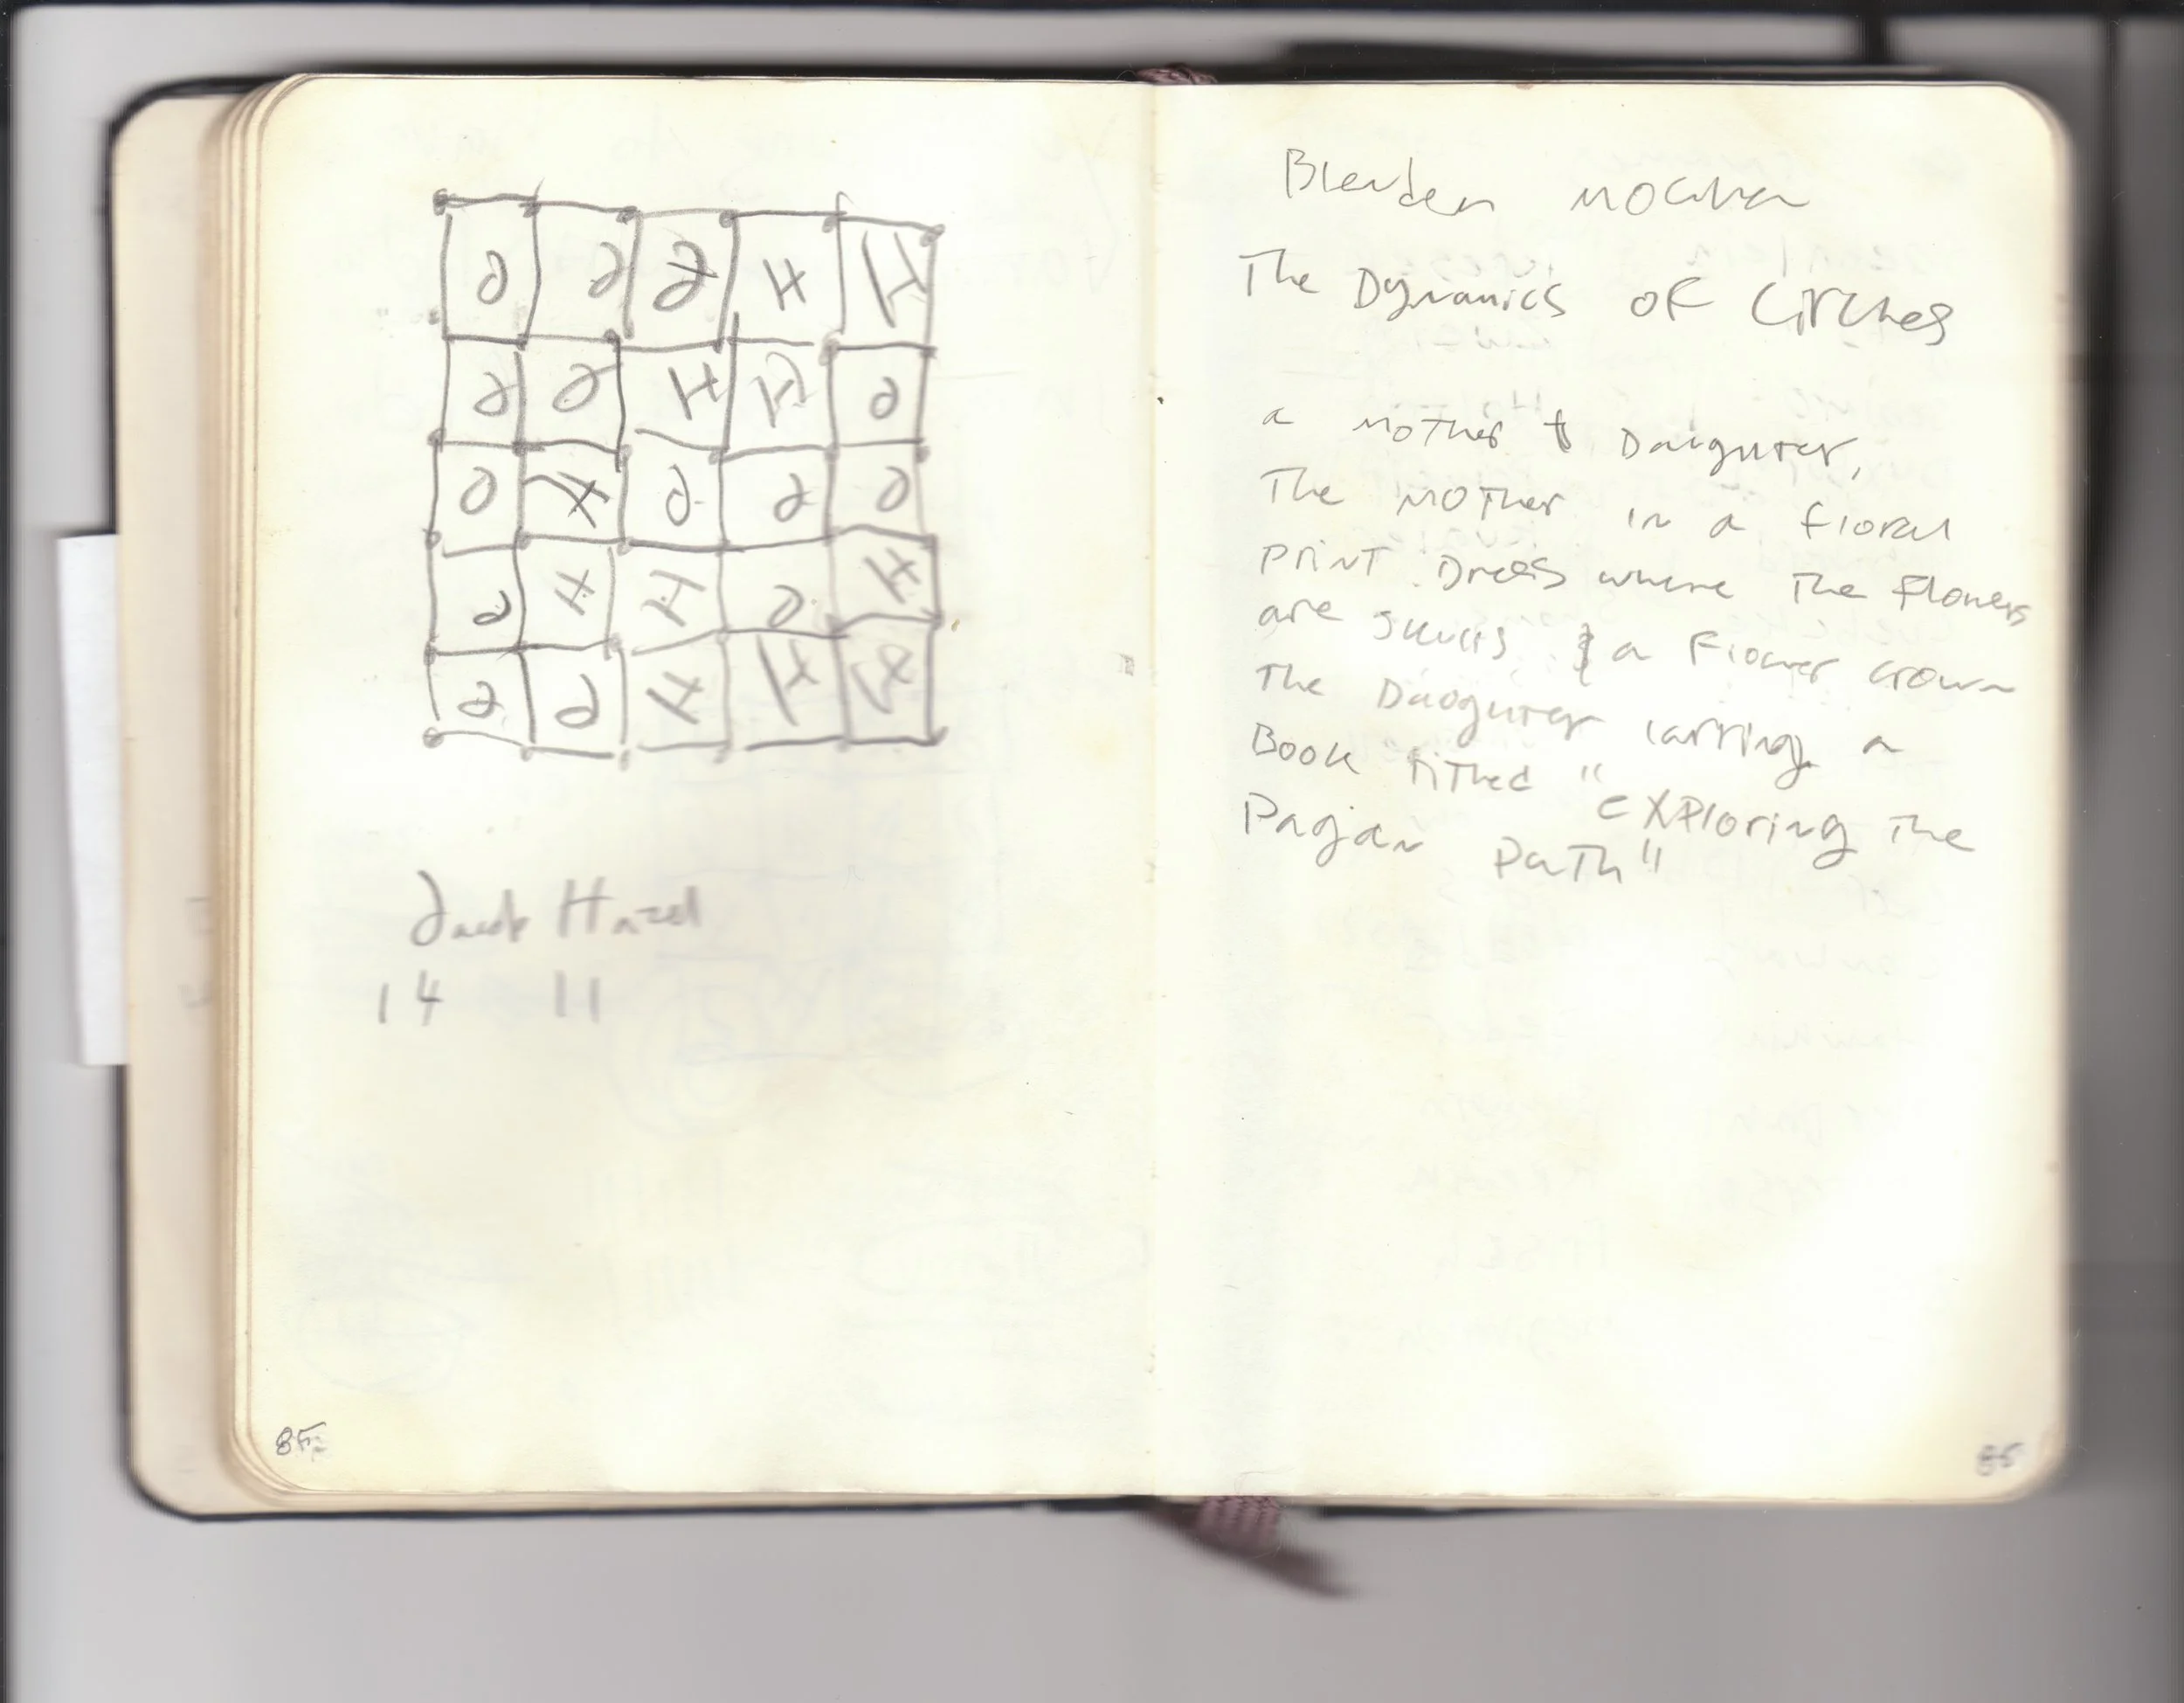 ∂ ∂ ∂ H H
∂ ∂ H H ∂
∂ H ∂ ∂ ∂
∂ H H ∂ H
∂ ∂ H H H
Jacob Hazel
14 11
85
Blenden mocha
The Dynamics of Circles
a mother & Daiguter,
The mother in a floral
print Dress where The flowers
are skulls & a Flower crown
The Daoguter carring a
Book titled "exploring The
Pagan Path"
86